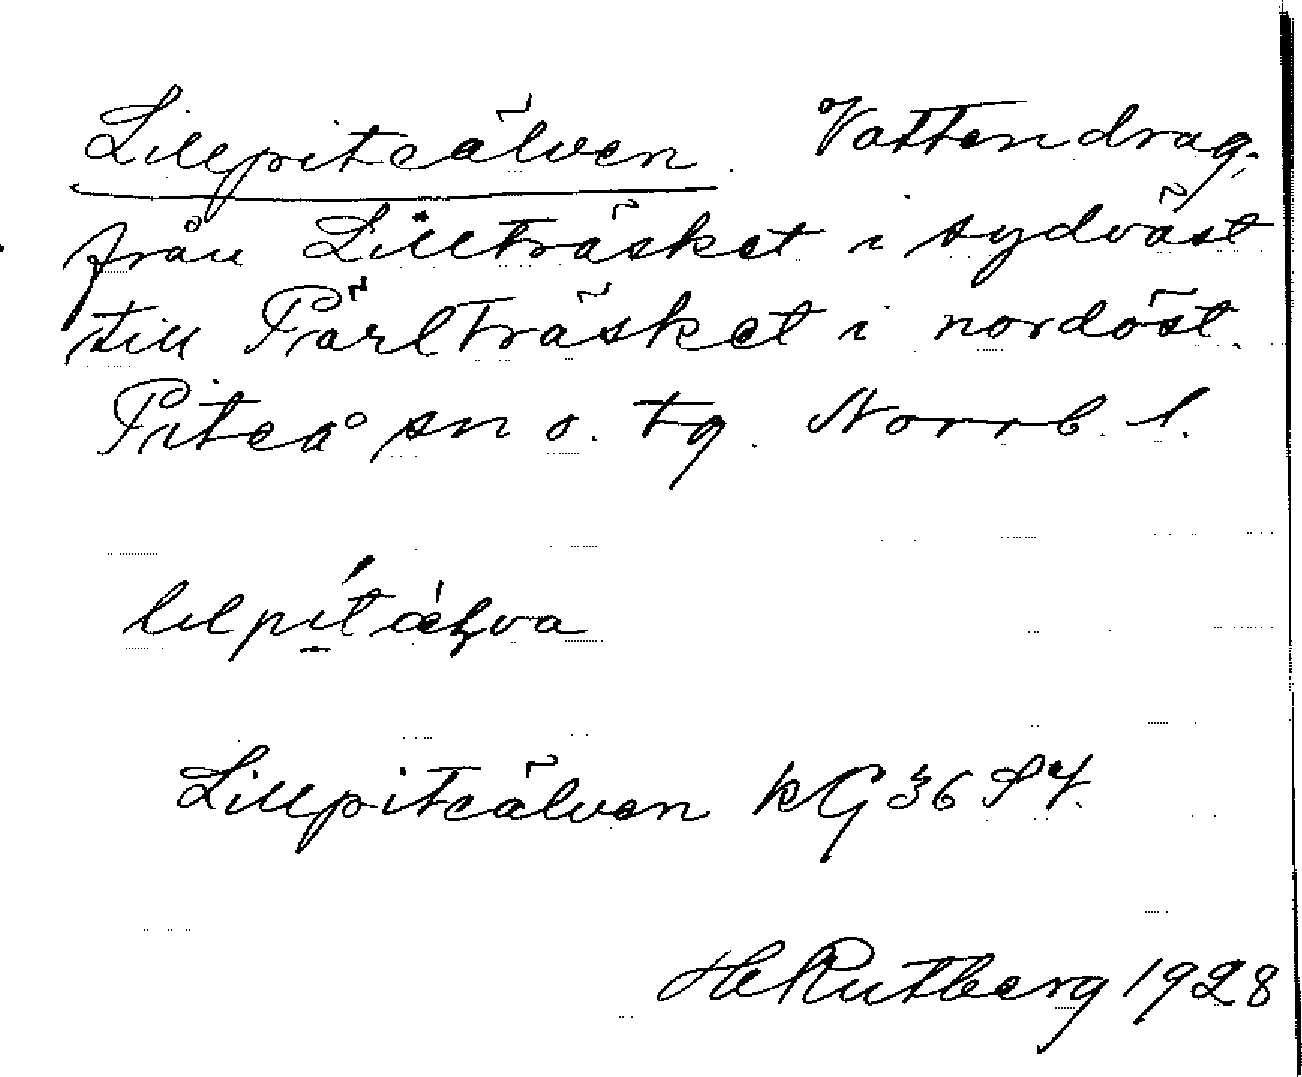 Lillpiteälven. Vattendrag
från Lillträsket i sydväst
till Pärlträsket i nordöst.
Piteå sn o. tg. Norrb. l.
Lillpiteälven kG 36
HeRutberg 1928